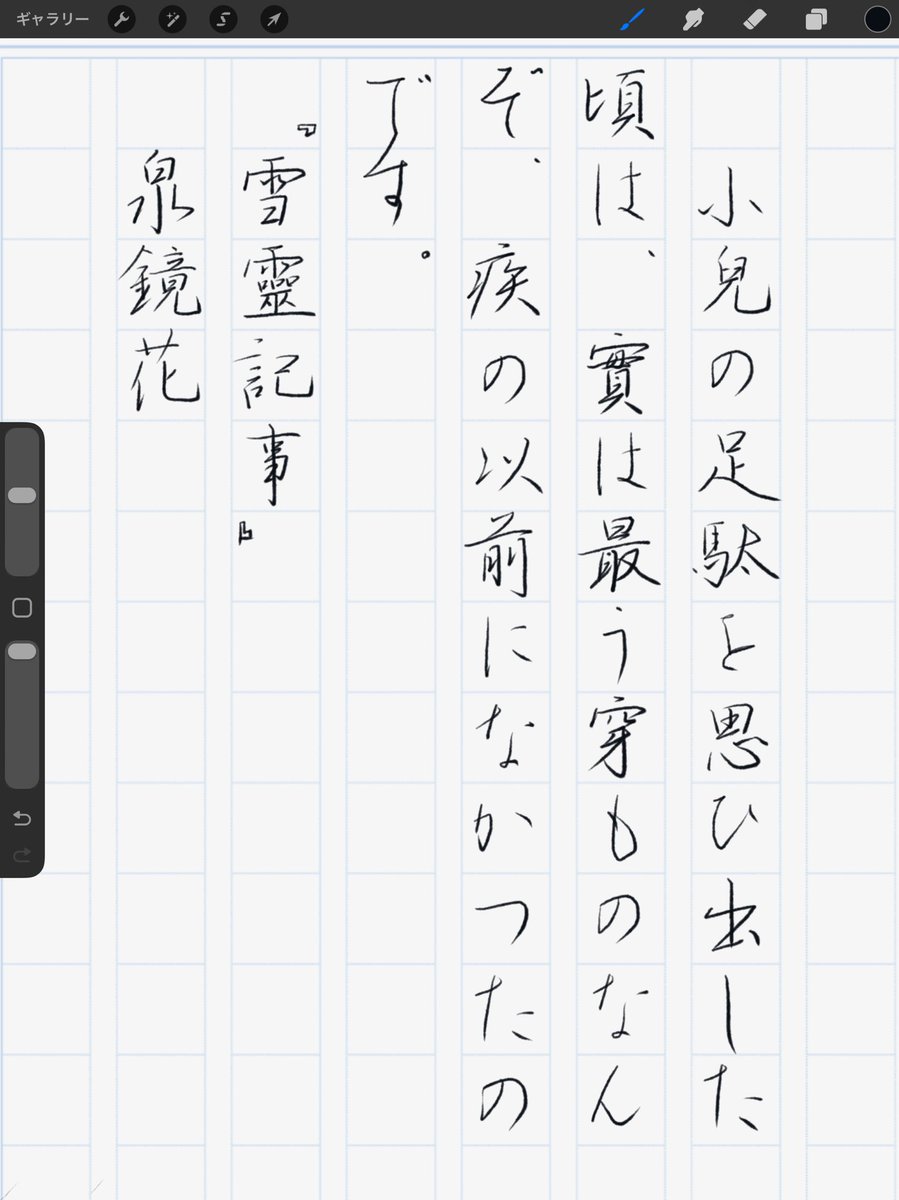 ギャラリー
小兒の足駄を思ひ出した
頃は、實は最う穿ものなん
ぞ、疾の以前になかつたの
です。
『雪靈記事』
泉鏡花